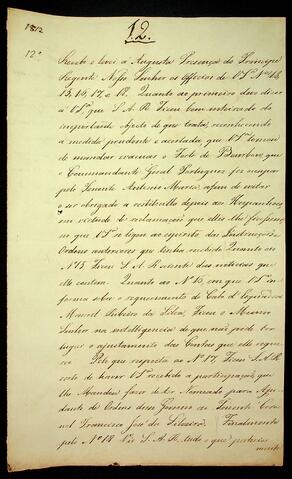 1812
12
12º
Recebi e levei á Augusta Presença do Principe
Regente Nosso Senhor os Officios de V. Sª Nos 14,
15, 16, 17, e 18. Quanto ao primeiro devo dizer
á V. Sª que S. A. R. Ficou bem inteirado do
importante objecto de que trata, reconhecendo
a medida prudente e acertada, que V. Sª tomou
de mandar evacuar o Forte de Borbon, que
o Commandante Geral Portuguez fez occupar
pelo Tenente Antonio Maria, afim de evitar
o ser obrigado a restituillo depois aos Hespanhoes
em virtude de reclamação que elles lhe fizessem
no que V. Sª seligou ao espirito das Instrucções e
Ordens anteriores que tinha recebido. Quanto ao
Nº 15, Ficou S. A. R. sciente das noticias que
elle contem. Quanto ao Nº 16, em que V. Sª in
forma sobre o requerimento do Cabo d'Esquadra
Manoel Ribeiro da Silva, Ficou o Mesmo
Senhor na intelligencia de que não pode ter
lugar o ajustamento das Contas que elle reque
reo. Pelo que respeita ao Nº 17, Ficou S. A. R.
certo de haver V. Sª recebido a participação, que
lhe Mandou fazer de ter Nomeado para Aju
dante de Ordens desse Governo ao Tenente Coro
nel Francisco José da Silveira. Finalmente
pelo Nº 18 Vio S. A. R. tudo o que